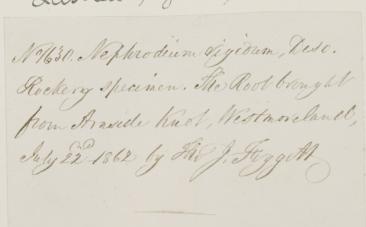 No. 7630. Nephrodium rigidum, Desv.
Rockery specimen. The Root brought
from Arnside Knot, Westmoreland,
July 22d 1862 by Thos J. Foggitt